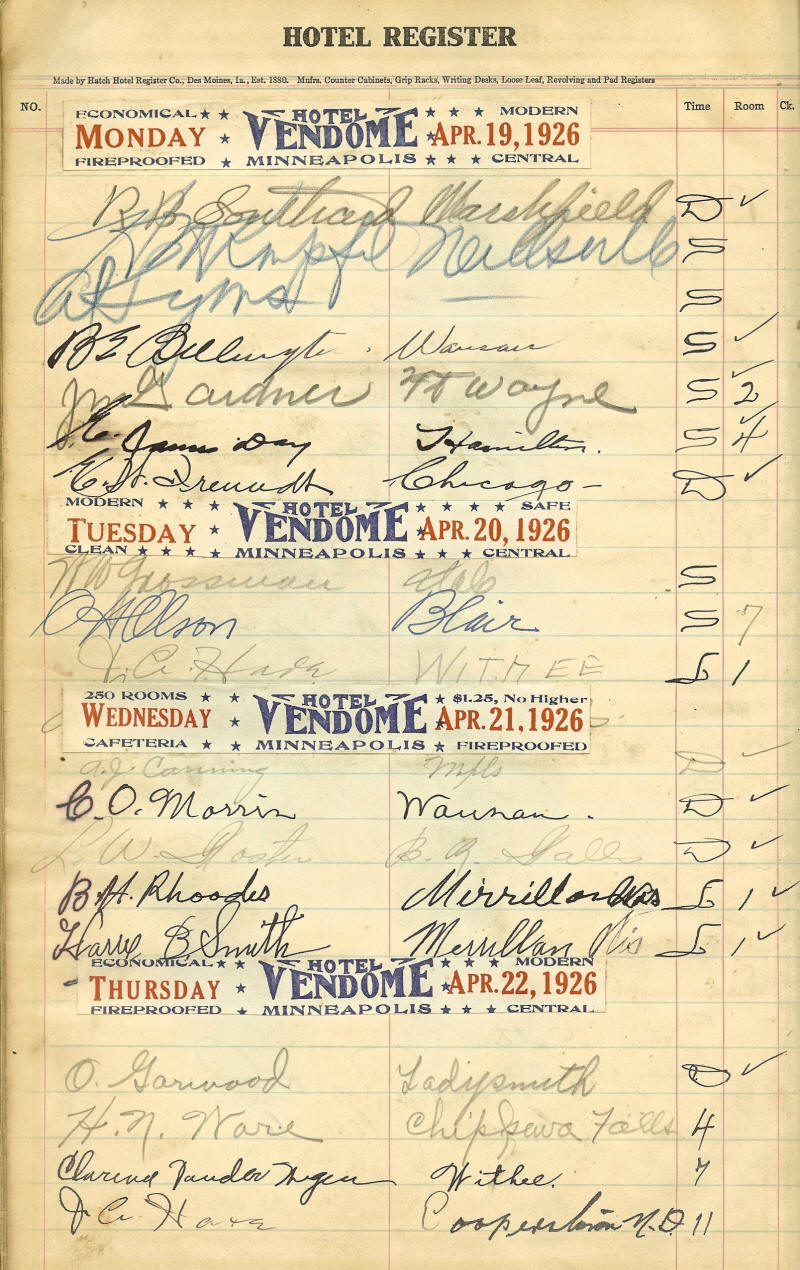 HOTEL REGISTER
Made by Hatch Hotel Register Co., Des Moines, Ia., Est. 1880. Mnfrs. Counter Cabinets, Grip Racks, Writing Desks, Loose Leaf, Revolving and Pad Registers
NO. Time Room Ck.
ECONOMICAL ★ ★ HOTEL ★ ★ ★ MODERN
MONDAY ★ VENDOME ★ APR. 19, 1926
FIREPROOFED ★ MINNEAPOLIS ★ ★ ★ CENTRAL
R. B. Southard Marshfield D ✓
Neillsville S
S
B E Wausau S ✓
J M Gardner Ft Wayne S 2 ✓
James Day Hamilton. S 4 ✓
Chicago – D ✓
MODERN ★ ★ ★ HOTEL ★ ★ ★ ★ SAFE
TUESDAY ★ VENDOME ★ APR. 20, 1926
CLEAN ★ ★ ★ ★ MINNEAPOLIS ★ ★ ★ CENTRAL
W W Grossman S
O H Olson Blair S 7
J. C. WITHEE 1
250 ROOMS ★ ★ HOTEL ★ $1.25, No Higher
WEDNESDAY ★ VENDOME ★ APR. 21, 1926
CAFETERIA ★ ★ MINNEAPOLIS ★ FIREPROOFED
A. J. Canning Mpls D ✓
C. O. Morrin D ✓
L. W. B. R. Falls D ✓
B. H. Rhoades Merrillan Wis 1 ✓
Harry B Smith Merrillan Wis 1 ✓
ECONOMICAL ★ ★ HOTEL ★ ★ ★ MODERN
THURSDAY ★ VENDOME ★ APR. 22, 1926
FIREPROOFED ★ MINNEAPOLIS ★ ★ ★ CENTRAL
O. Garwood Ladysmith D ✓
H. N. Ware Chippewa Falls 4
Withee. 7
J. C. Cooperstown N.D. 11